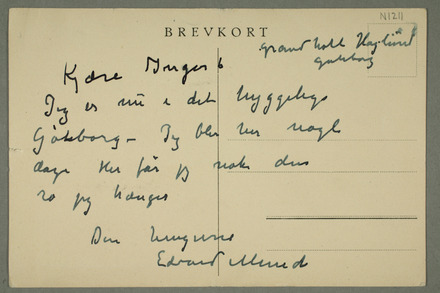 N1211
BREVKORT
Grand Hotel Haglund
Göteborg
Kjære Inger
Jeg er nu i det hyggelige
Göteborg – Jeg blir her nogle
dage Her får jeg nok den
ro jeg trænger
Din hengivne
Edvard Munch